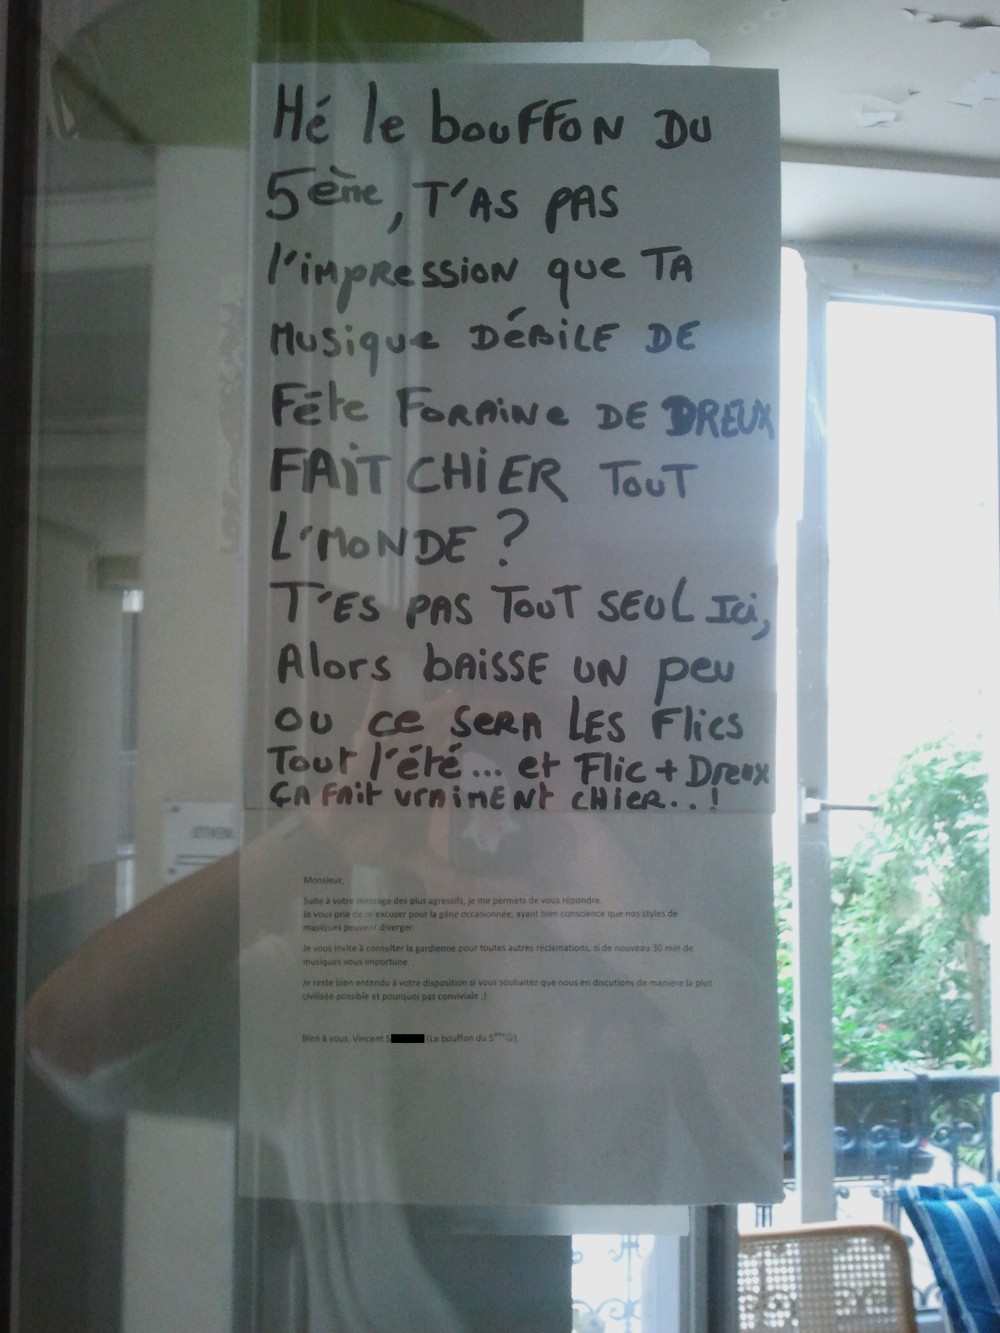 Hé le bouffon du
5ème, t'as pas
l'impression que ta
musique débile de
fête foraine de Dreux
FAIT CHIER tout
l'monde ?
T'es pas tout seul ici,
Alors baisse un peu
ou ce sera les flics
tout l'été... et Flic + Dreux
ça fait vraiment chier..!
Monsieur,
Suite à votre message des plus agressifs, je me permets de vous répondre.
Je vous prie de m'excuser pour la gêne occasionnée, ayant bien conscience que nos styles de
musiques peuvent diverger.
Je vous invite à consulter la gardienne pour toutes autres réclamations, si de nouveau 30 min de
musiques vous importune.
Je reste bien entendu à votre disposition si vous souhaitez que nous en discutions de manière la plus
civilisée possible et pourquoi pas conviviale ;)
Bien à vous, Vincent S (Le bouffon du 5ème☺).